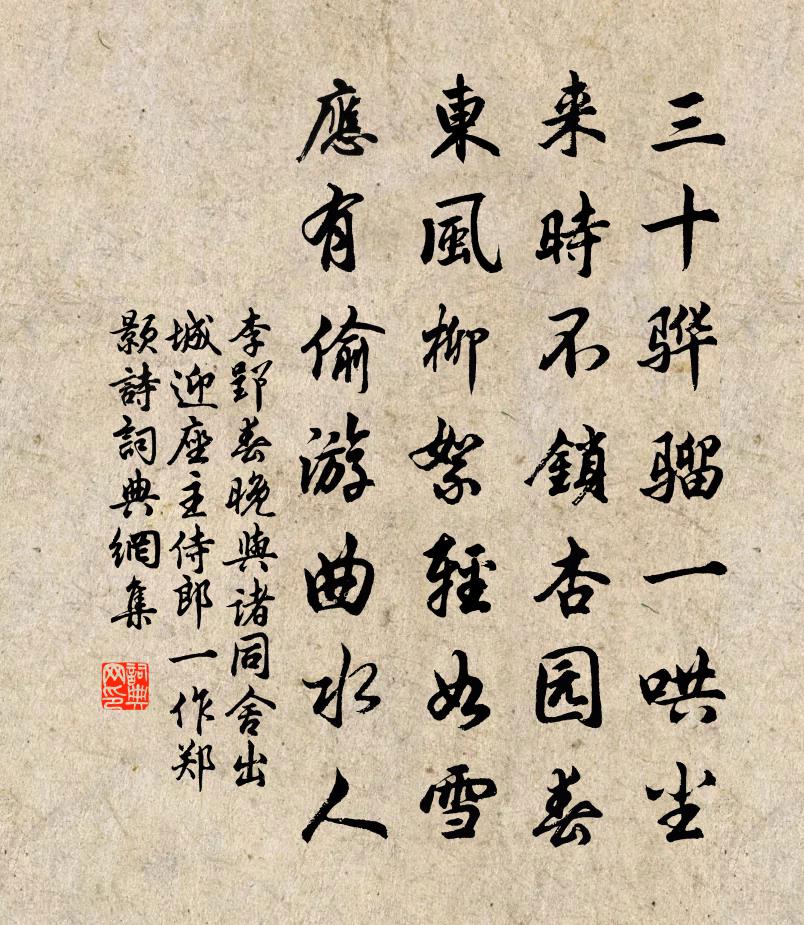 三十骅骝一哄尘
来時不鎖杏园春
東風柳絮輕如雪
應有偷游曲水人
李郢春晚與诸同舍出
城迎座主侍郎一作郑
颢詩詞典網集
詞典网印